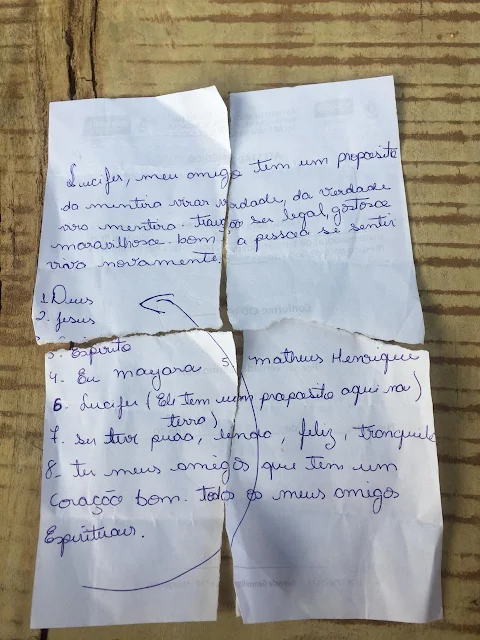 Lucifer, meu amigo tem um proposito
da mentira virar verdade, da verdade
vira mentira. traição ser legal, gostosa
maravilhosa. bom a pessoa se sentir
viva novamente.
1. Deus
2. Jesus
3. Espirito
4. Eu mayara 5. matheus Henrique
6. Lucifer (Ele tem um proposito aqui na
terra)
7. ser puro, lendo, feliz, tranquilo
8- ter meus amigos que tem um
coração bom. todos os meus amigos
Espirituais.